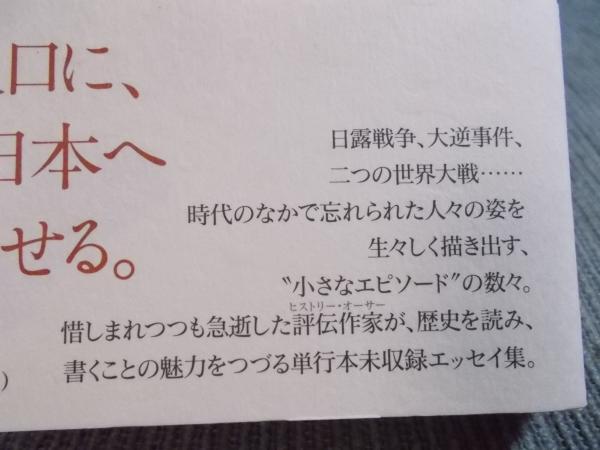 口に、
日本へ
せる。
日露戦争、大逆事件、
二つの世界大戦……
時代のなかで忘れられた人々の姿を
生々しく描き出す、
〝小さなエピソード〟の数々。
ヒストリー・オーサー
惜しまれつつも急逝した評伝作家が、歴史を読み、
書くことの魅力をつづる単行本未収録エッセイ集。
)